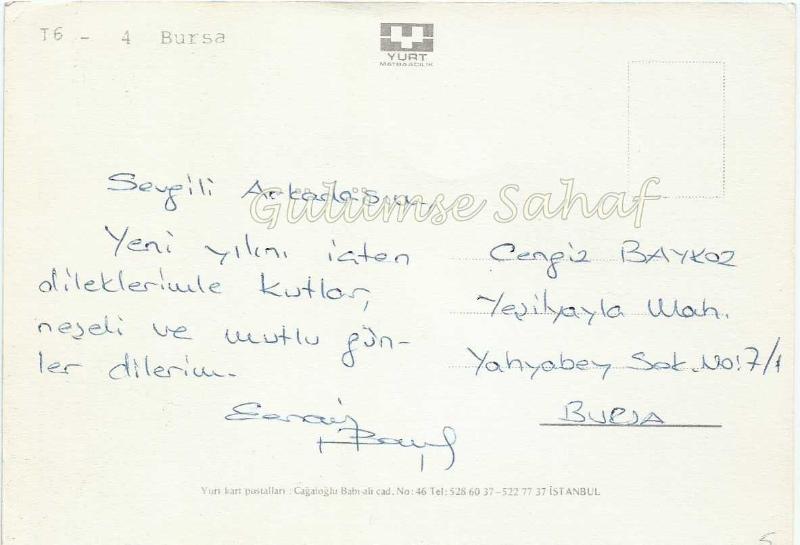 T6 - 4 Bursa
YURT
MATBAACILIK
Sevgili Arkadaşım,
Gülümse Sahaf
Yeni yılını içten
dileklerimle kutlar,
neşeli ve mutlu gün-
ler dilerim.
Cengiz BAYKOZ
Yeşilyayla Mah.
Yahyabey Sok. No: 7/1
BURSA
Yurt kart postalları : Cağaloğlu Babı-ali cad. No: 46 Tel: 528 60 37-522 77 37 İSTANBUL